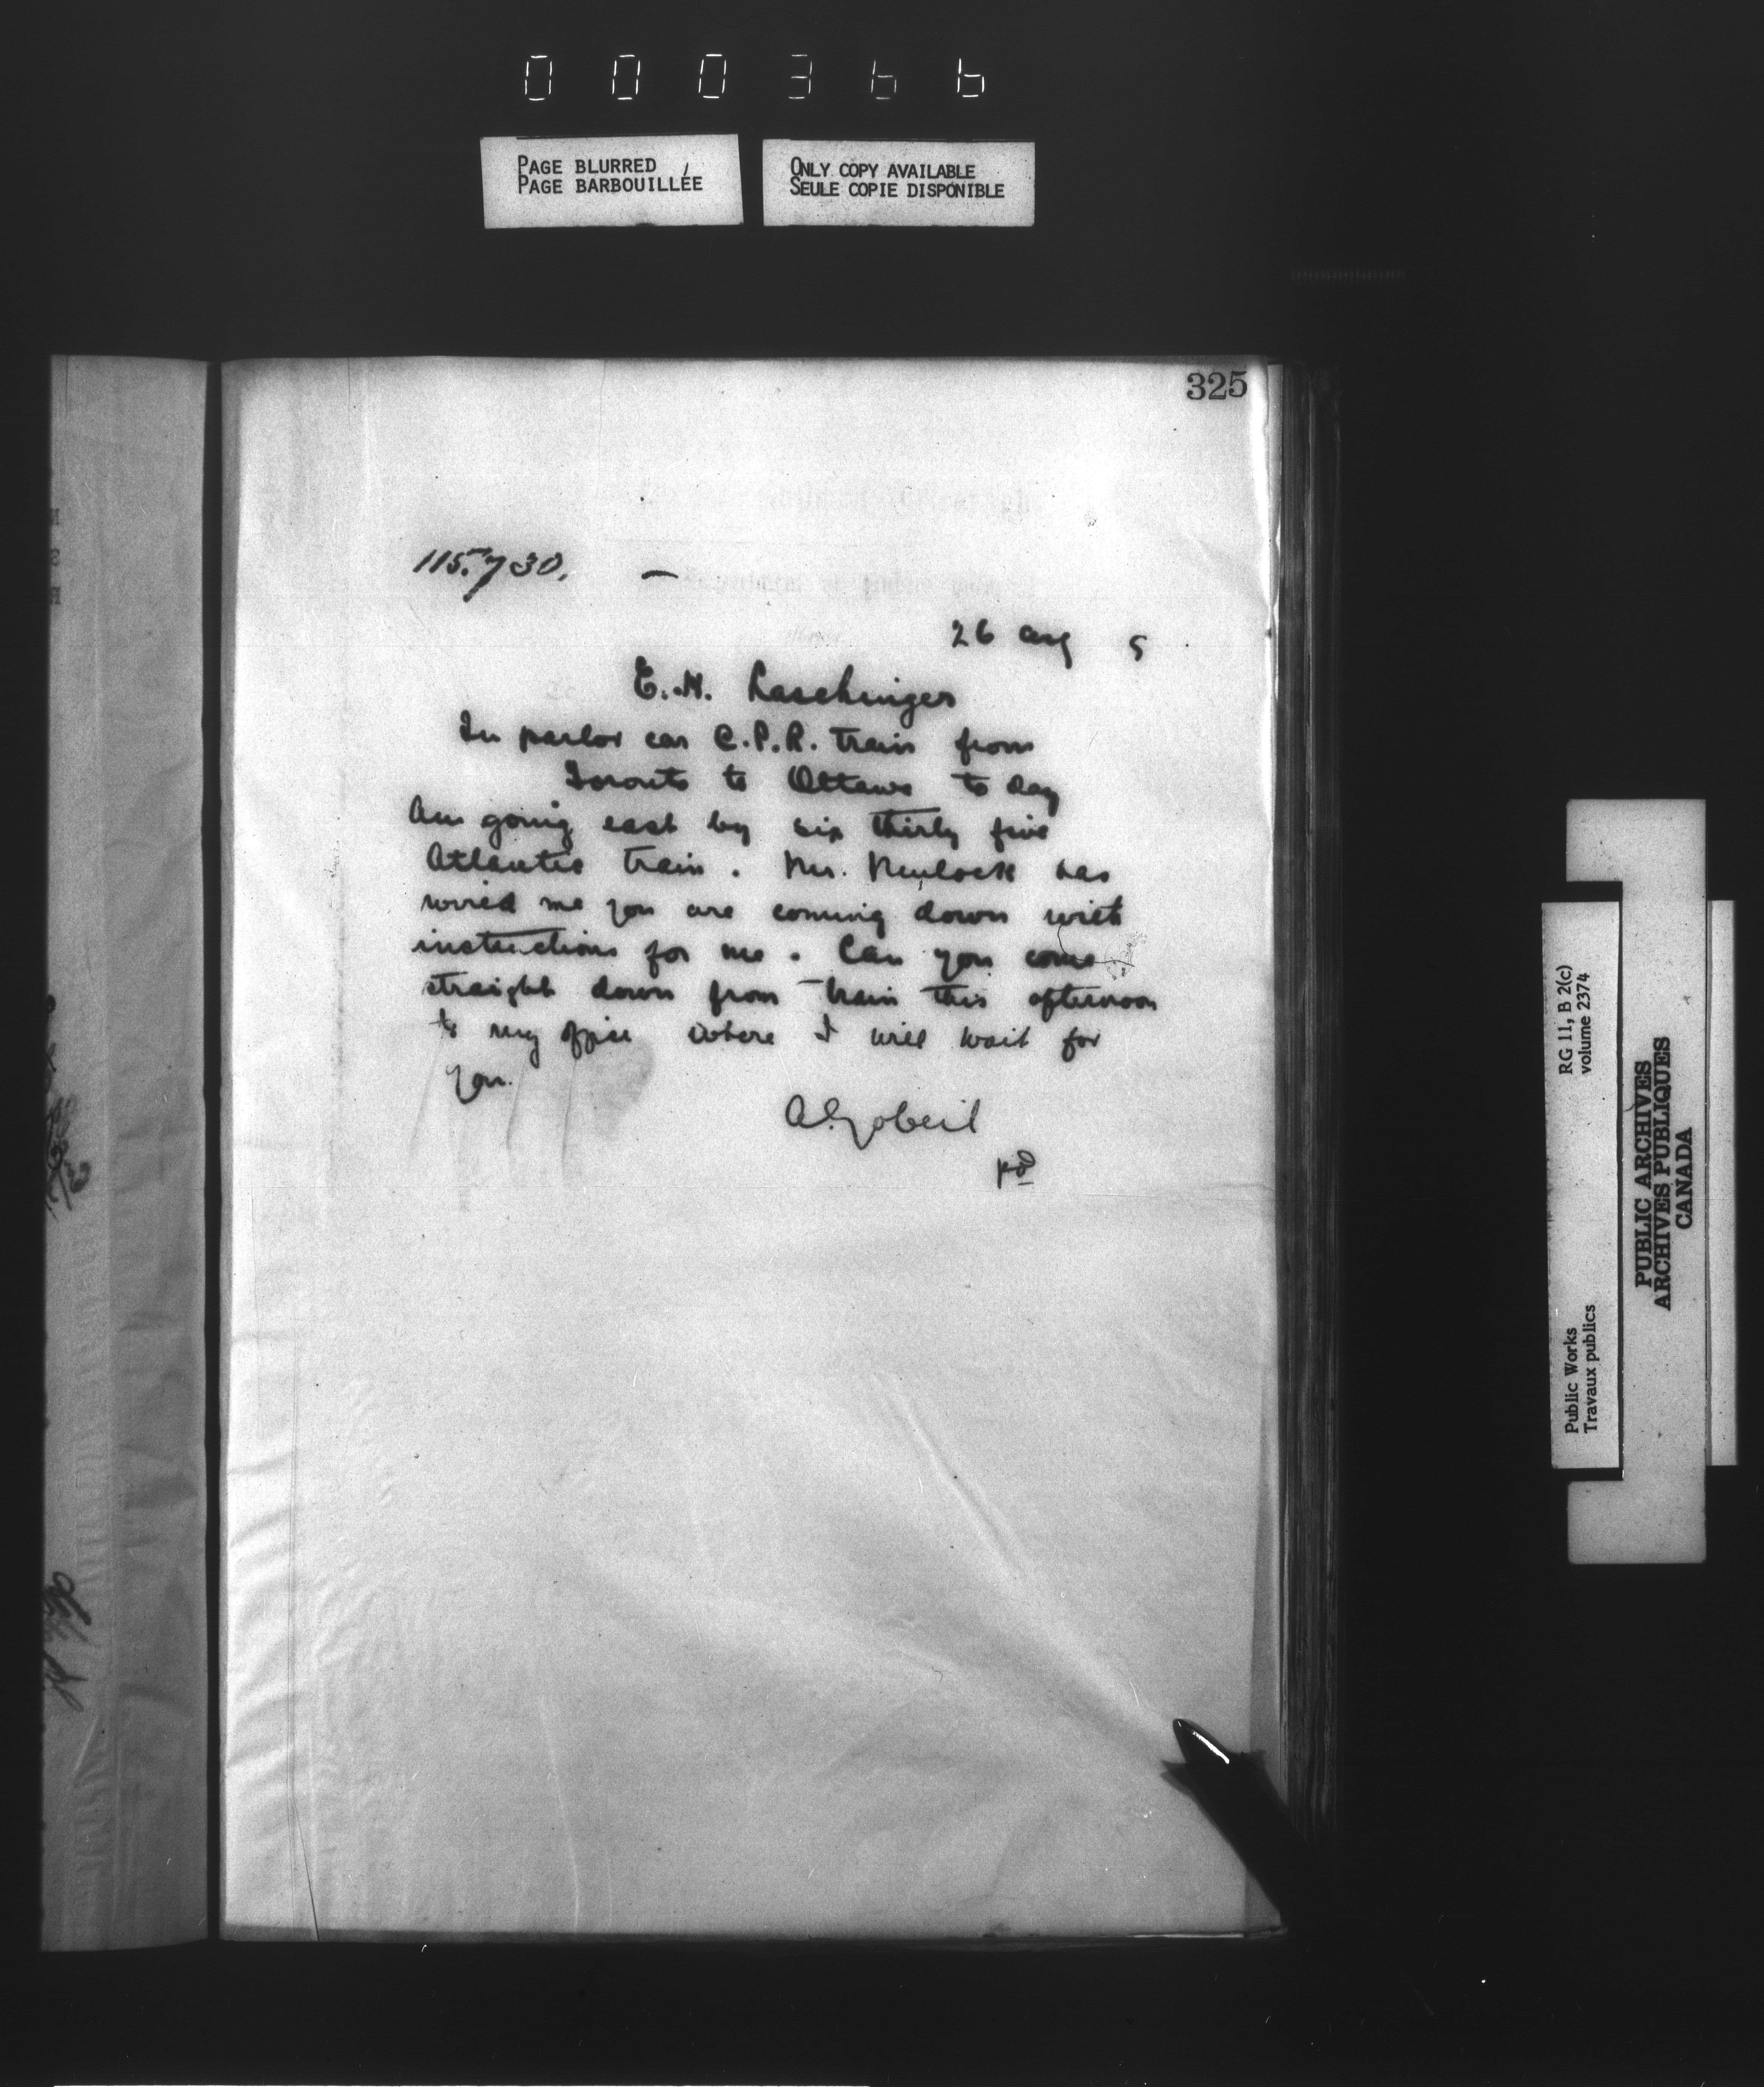 000366
PAGE BLURRED
PAGE BARBOUILLÉE
ONLY COPY AVAILABLE
SEULE COPIE DISPONIBLE
325
115.730.
26 aug 5
E. H. Laschinger
In parlor car C.P.R. train from
Toronto to Ottawa to day
Am going east by six thirty five
Atlantic train. Mr. Mulock has
wired me you are coming down with
instructions for me. Can you come
straight down from train this afternoon
to my office where I will wait for
you.
A. Gobeil
pd
RG 11, B 2(c)
volume 2374
Public Works
Travaux publics
PUBLIC ARCHIVES
ARCHIVES PUBLIQUES
CANADA